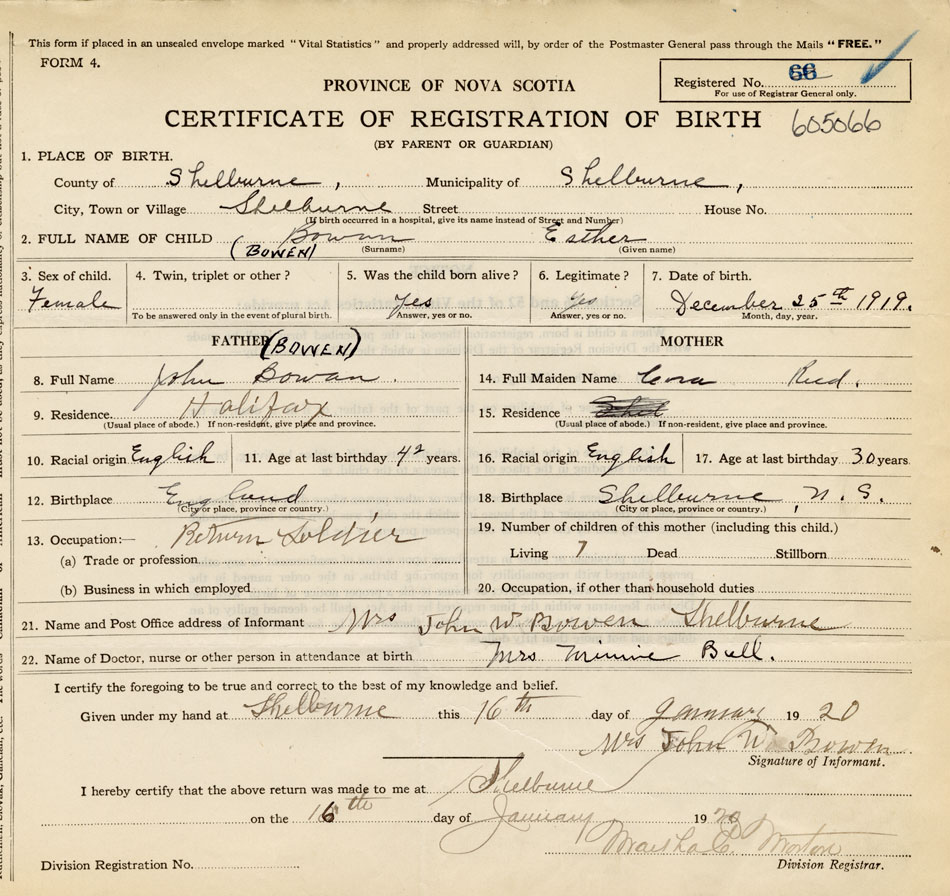 This form if placed in an unsealed envelope marked "Vital Statistics" and properly addressed will, by order of the Postmaster General pass through the Mails "FREE."
FORM 4.
Registered No. 66
For use of Registrar General only.
PROVINCE OF NOVA SCOTIA
CERTIFICATE OF REGISTRATION OF BIRTH 605066
(BY PARENT OR GUARDIAN)
1. PLACE OF BIRTH.
County of Shelburne, Municipality of Shelburne,
City, Town or Village Shelburne Street House No.
(If birth occurred in a hospital, give its name instead of Street and Number)
2. FULL NAME OF CHILD Bowan Esther
(BOWEN) (Surname) (Given name)
3. Sex of child. 4. Twin, triplet or other? 5. Was the child born alive? 6. Legitimate? 7. Date of birth.
Female Yes Yes December 25th 1919.
To be answered only in the event of plural birth. Answer, yes or no. Answer, yes or no. Month, day, year.
FATHER (BOWEN) MOTHER
8. Full Name John Bowan. 14. Full Maiden Name Cora Reed.
9. Residence. Halifax 15. Residence
(Usual place of abode.) If non-resident, give place and province. (Usual place of abode.) If non-resident, give place and province.
10. Racial origin English 11. Age at last birthday 42 years. 16. Racial origin English 17. Age at last birthday 30 years.
12. Birthplace England 18. Birthplace Shelburne, N. S.
(City or place, province or country.) (City or place, province or country.)
13. Occupation:— Return Soldier 19. Number of children of this mother (including this child.)
(a) Trade or profession Living 7 Dead Stillborn
(b) Business in which employed 20. Occupation, if other than household duties
21. Name and Post Office address of Informant Mrs John W Bowen Shelburne
22. Name of Doctor, nurse or other person in attendance at birth Mrs Minnie Bull.
I certify the foregoing to be true and correct to the best of my knowledge and belief.
Given under my hand at Shelburne this 16th day of January 1920
Mrs John W Bowen
Signature of Informant.
I hereby certify that the above return was made to me at Shelburne
on the 16th day of January 1920
Morton
Division Registration No. Division Registrar.